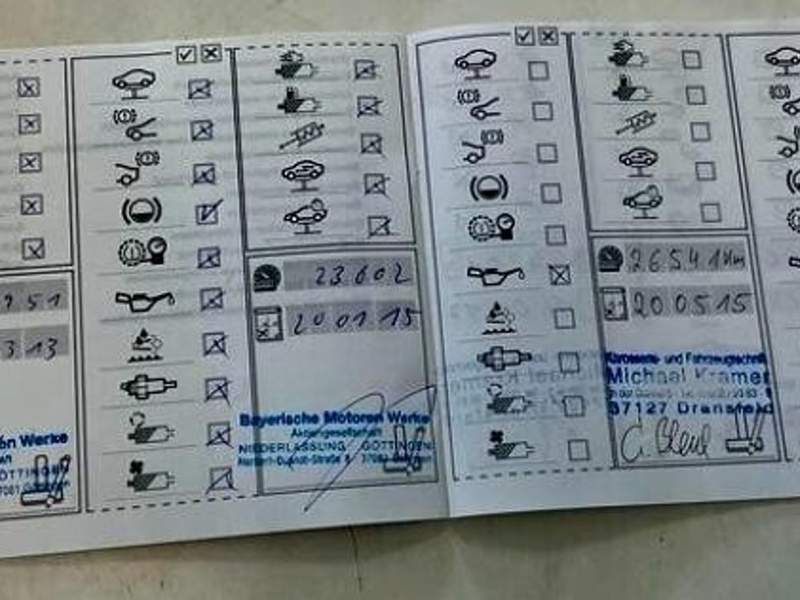 951
3 13
en Werke
23602
20 01 15
Bayerische Motoren Werke
Aktiengesellschaft
NIEDERLASSUNG GÖTTINGEN
26541 km
20 05 15
Karosserie- und Fahrzeugtechnik
Michael Kramer
37127 Dransfeld